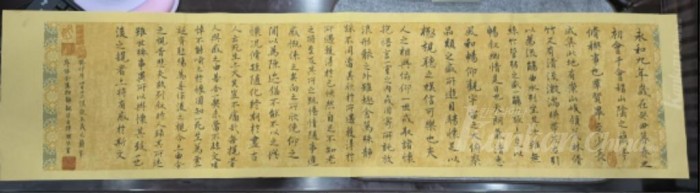 永和九年歲在癸丑暮春之
初會于會稽山陰之蘭亭
脩禊事也群賢畢至少長
咸集此地有崇山峻領茂林脩
竹又有清流激湍映帶左右引
以為流觴曲水列坐其次雖無
絲竹管弦之盛一觴一詠亦足以
暢敘幽情是日也天朗氣清惠
風和暢仰觀宇宙之大俯察
品類之盛所以遊目騁懷足以
極視聽之娛信可樂也夫
人之相與俯仰一世或取諸懷
抱悟言一室之內或因寄所託放
浪形骸之外雖趣舍萬殊靜
躁不同當其欣於所遇暫得
於己快然自足不知老
之將至及其所之既惓情隨事遷
感慨係之矣向之所欣俛仰之
間以為陳迹猶不能不以之興
懷況脩短隨化終期於盡古
人云死生亦大矣豈不痛哉每攬昔
人興感之由若合一契未嘗不臨文嗟
悼不能喻之於懷固知一死生為虛
誕齊彭殤為妄作後之視今亦由今
之視昔悲夫故列敘時人錄其所述
雖世殊事異所以興懷其致一也
後之攬者亦將有感於斯文
China